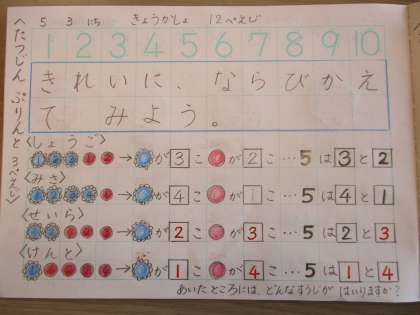 5 3 にち きょうかしょ 12ぺえじ
へたつじん ぷりんと 3ぺえじ〉
1 2 3 4 5 6 7 8 9 10
きれいに、ならびかえ
て みよう。
〈しょうご〉
1 2 3 → が 3 こ が 2 こ …5は 3 と 2
〈みさ〉
1 2 3 4 → が 4 こ が 1 こ …5は 4 と 1
〈せいら〉
→ が 2 こ が 3 こ …5は 2 と 3
〈けんと〉
→ が 1 こ が 4 こ …5は 1 と 4
あいたところには、どんなすうじが はいりますか?